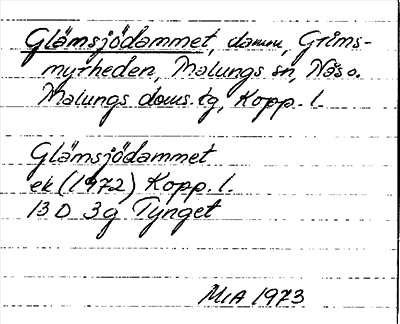 Glämsjödammet, damm, Grims-
myrheden, Malungs sn, Näs o.
Malungs doms. tg, Kopp. l.
Glämsjödammet
ek (1972) Kopp. l.
13 D 3g Tynget
MIA 1973